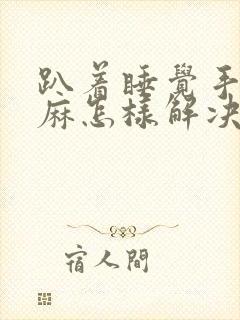 趴着睡覺手
麻怎樣解决
宿人間